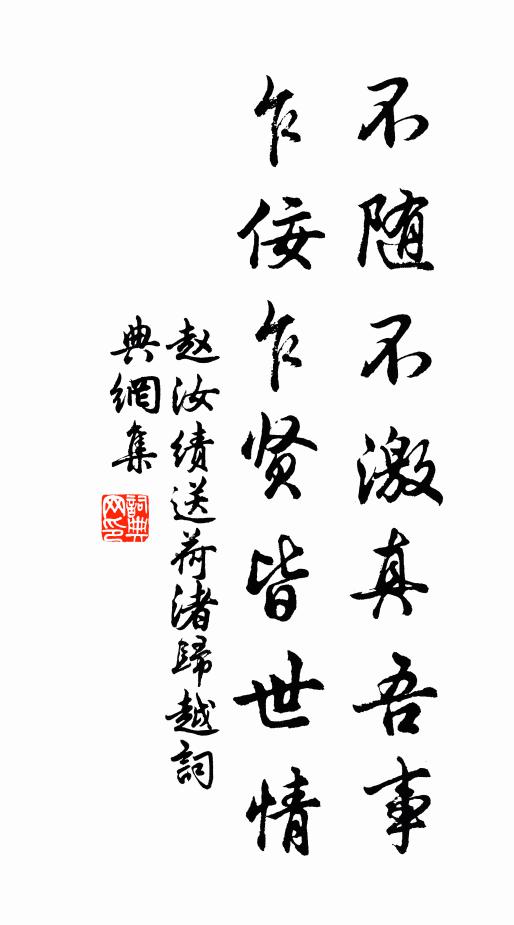 不随不激真吾事
乍佞乍贤皆世情
赵汝绩送荷渚歸越詞
典網集
詞典网印